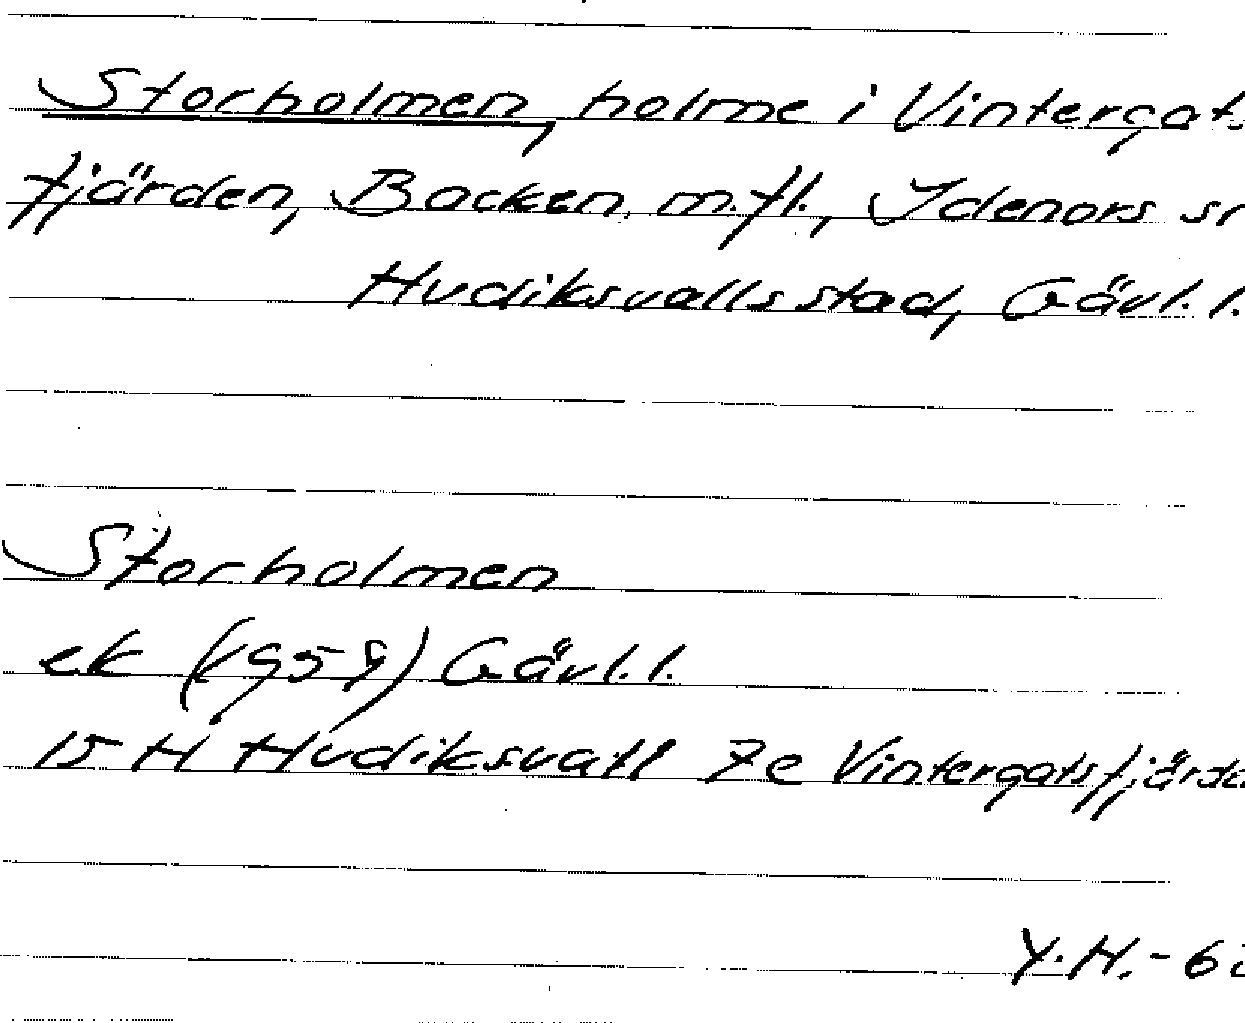 Storholmen, holme i Vintergats
fjärden, Backen m.fl., Idenors sn
Hudiksvalls stad, Gävl. l.
Storholmen
ek (1959) Gävl. l.
15 H Hudiksvall 7e Vintergatsfjärde
Y.H.-6